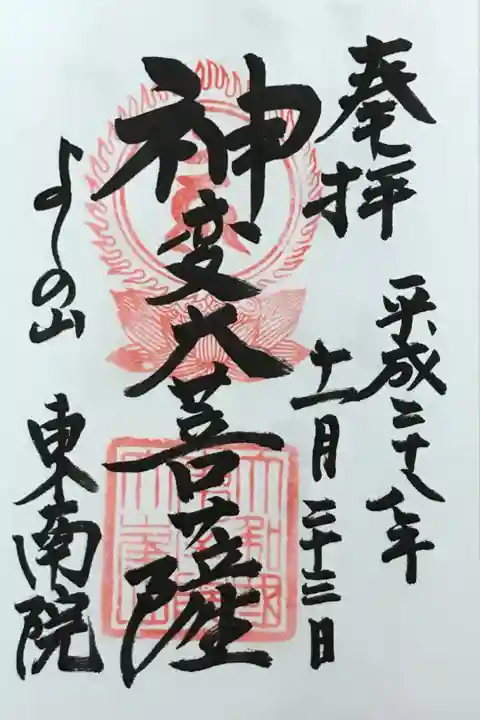 奉拝
平成二十八年
十一月二十三日
神変大菩薩
よしの山
東南院